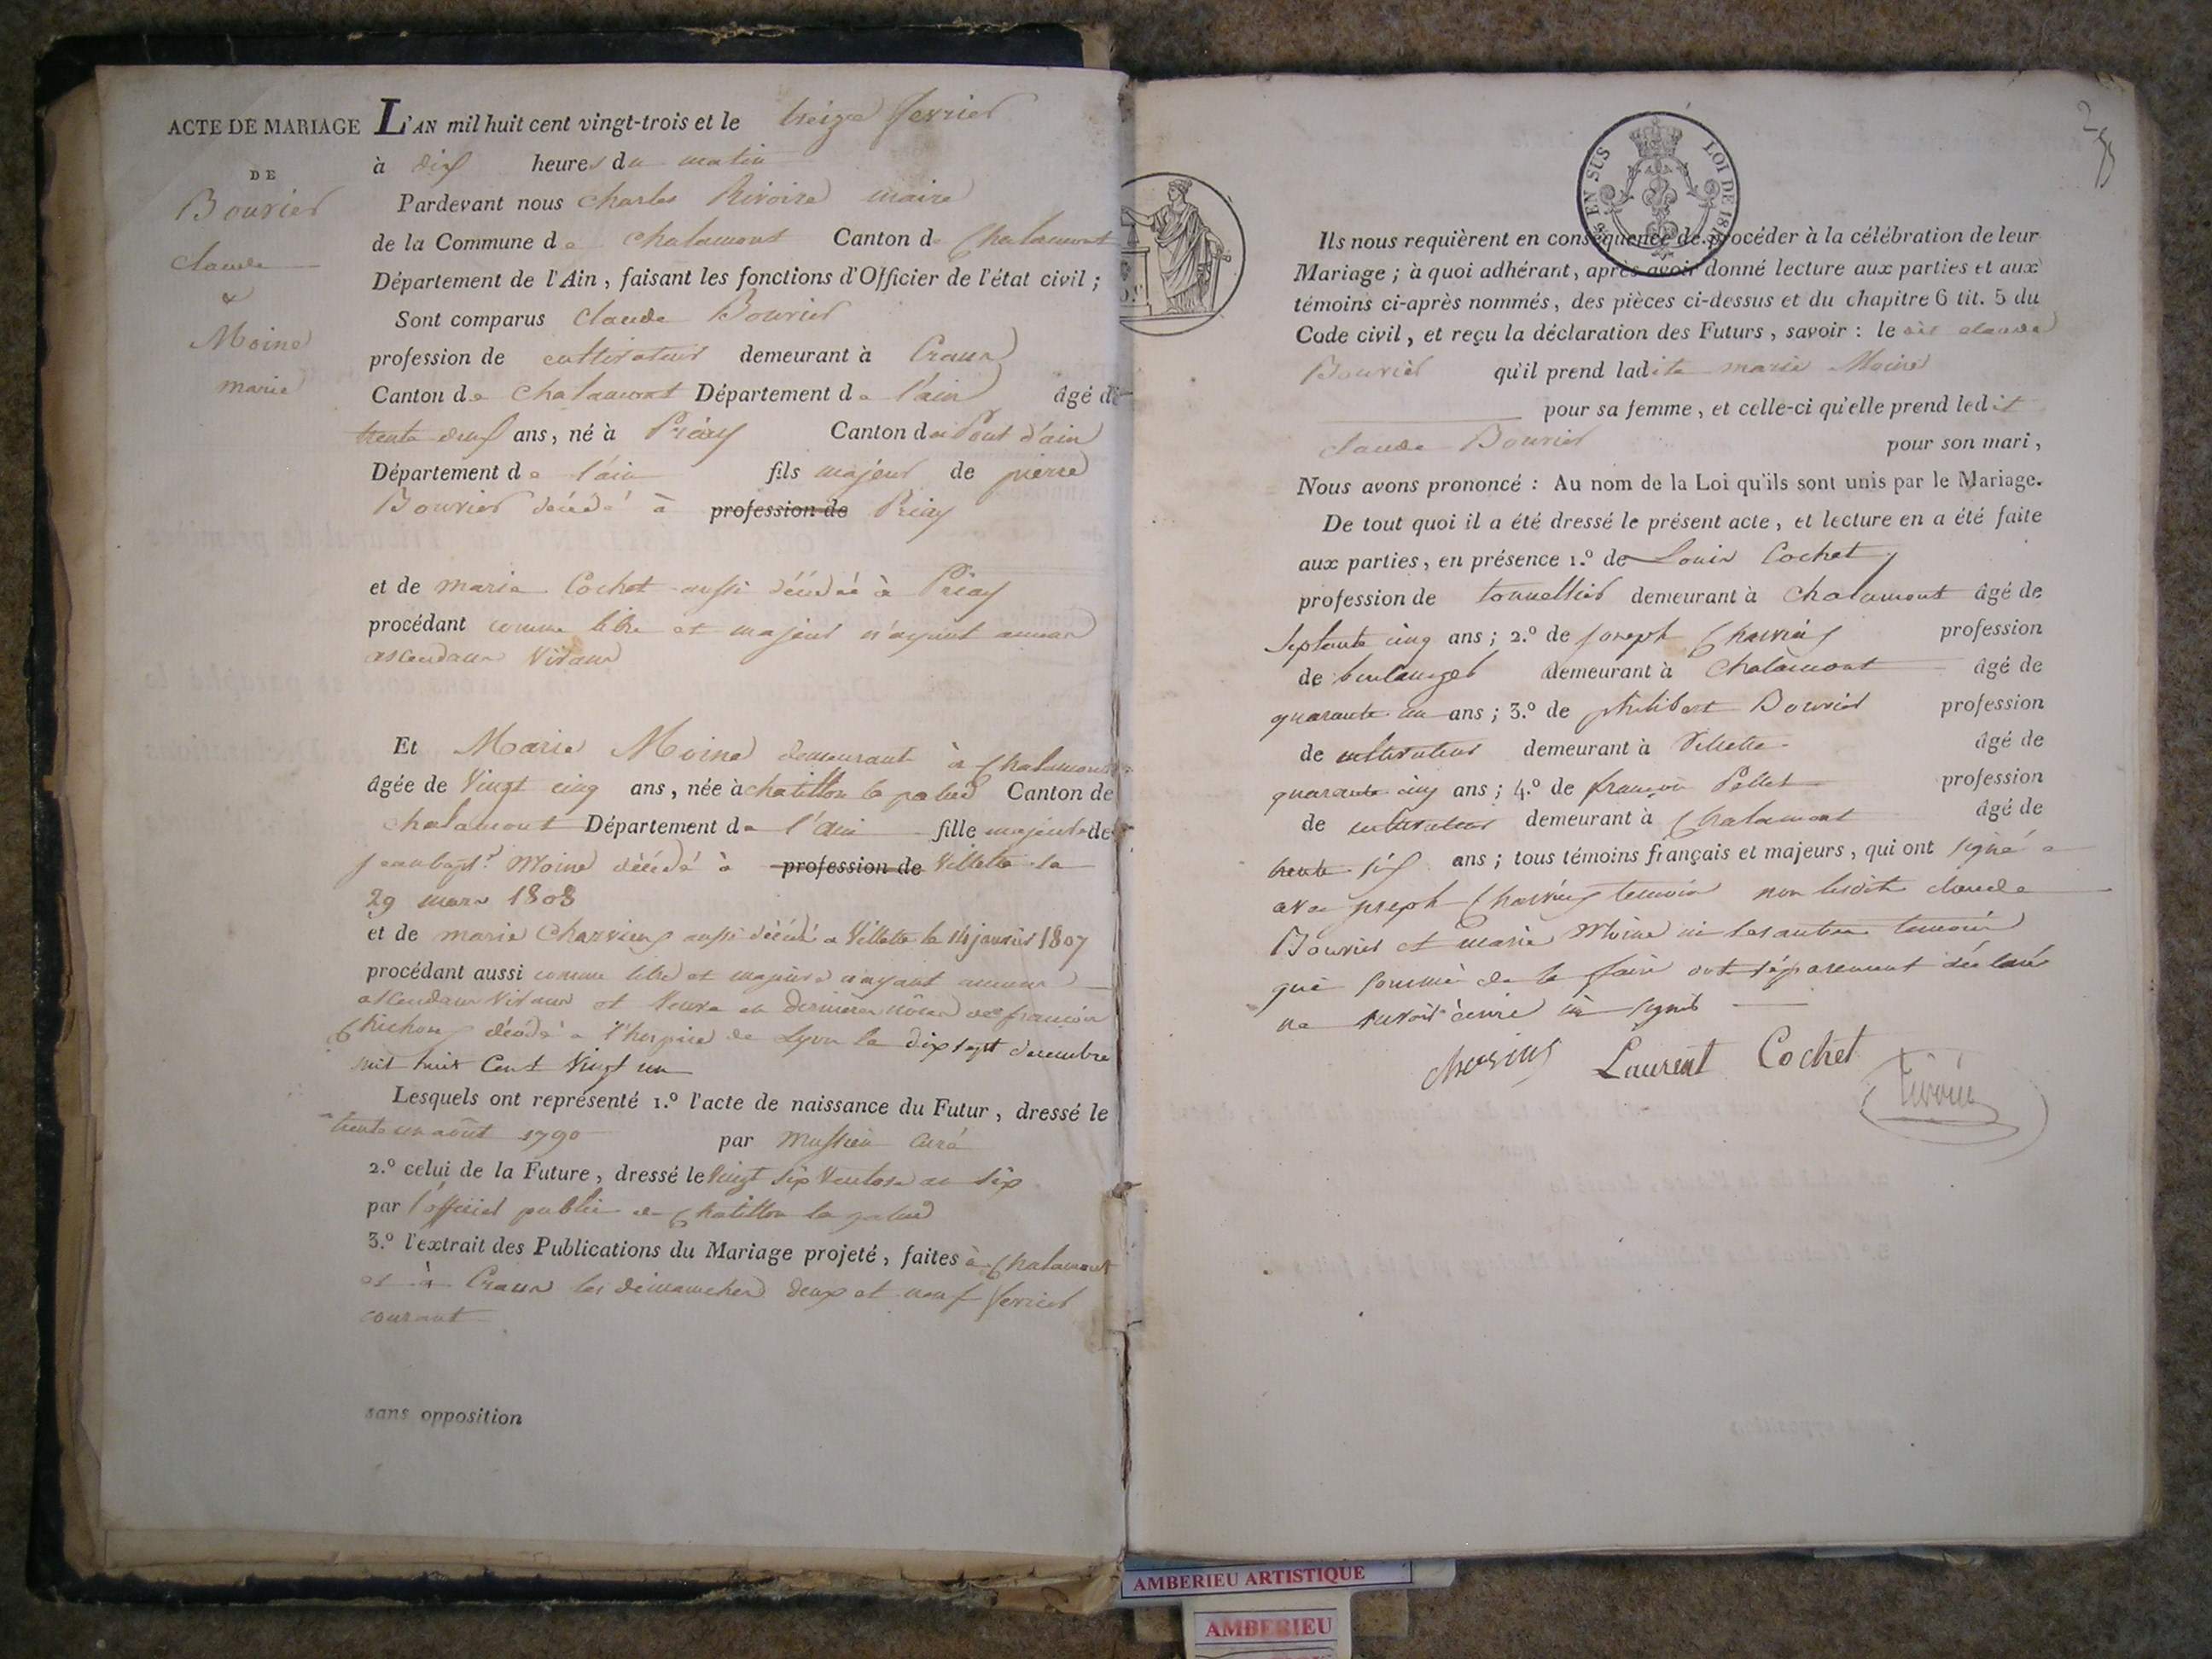 ACTE DE MARIAGE
DE
Bouvier
claude
&
Moine
marie
L'AN mil huit cent vingt-trois et le treize fevrier
à dix heures du matin
Pardevant nous charles Rivoire maire
de la Commune de chalamont Canton de Chalamont
Département de l'Ain, faisant les fonctions d'Officier de l'état civil ;
Sont comparus Claude Bouvier
profession de cultivateur demeurant à Crans
Canton de Chalamont Département de l'ain âgé de
trente deux ans, né à Priay Canton de Pont d'ain
Département de l'ain fils majeur de pierre
Bouvier décédé à profession de Priay
et de marie Cochet aussi décédée à Priay
procédant comme libre et majeur n'ayant aucun
ascendans vivans
Et Marie Moine demeurant à Chalamont
âgée de vingt cinq ans, née à chatillon la palud Canton de
chalamont Département de l'ain fille majeure de
jean bapt.e Moine décédé à profession de Villette le
29 mars 1808
et de marie Charvieux aussi décédé a Villette le 14 janvier 1807
procédant aussi comme libre et majeure n'ayant aucun
ascendans vivans et veuve en dernières nôces de françois
décédé a l'hospice de Lyon le dix sept decembre
mil huit Cent vingt un
Lesquels ont représenté 1.º l'acte de naissance du Futur, dressé le
trente un août 1790 par Curé
2.º celui de la Future, dressé le vingt six ventose an six
par l'officier public de Chatillon la palud
3.º l'extrait des Publications du Mariage projeté, faites à Chalamont
et à Crans les dimanches deux et neuf fevrier
courant
sans opposition
EN SUS LOI DE 181
Ils nous requièrent en conséquence de procéder à la célébration de leur
Mariage ; à quoi adhérant, après avoir donné lecture aux parties et aux
témoins ci-après nommés, des pièces ci-dessus et du chapitre 6 tit. 5 du
Code civil, et reçu la déclaration des Futurs, savoir : le dit claude
Bouvier qu'il prend ladite marie Moine
pour sa femme, et celle-ci qu'elle prend ledit
claude Bouvier pour son mari,
Nous avons prononcé : Au nom de la Loi qu'ils sont unis par le Mariage.
De tout quoi il a été dressé le présent acte, et lecture en a été faite
aux parties, en présence 1.º de Louis Cochet
profession de tonnellier demeurant à Chalamont âgé de
septente cinq ans ; 2.º de joseph Charvieux profession
de boulanger demeurant à Chalamont âgé de
quarante un ans ; 3.º de philibert Bouvier profession
de cultivateur demeurant à Villette âgé de
quarante cinq ans ; 4.º de françois Pellet profession
de cultivateur demeurant à Chalamont âgé de
trente six ans ; tous témoins français et majeurs, qui ont signé
avec joseph Charvieux temoin non lesdits claude
Bouvier et marie Moine ni les autres temoins
que sommé de le faire ont séparement déclaré
ne savoir écrire ni signer
Laurent Cochet
Rivoire
AMBERIEU ARTISTIQUE
AMBERIEU